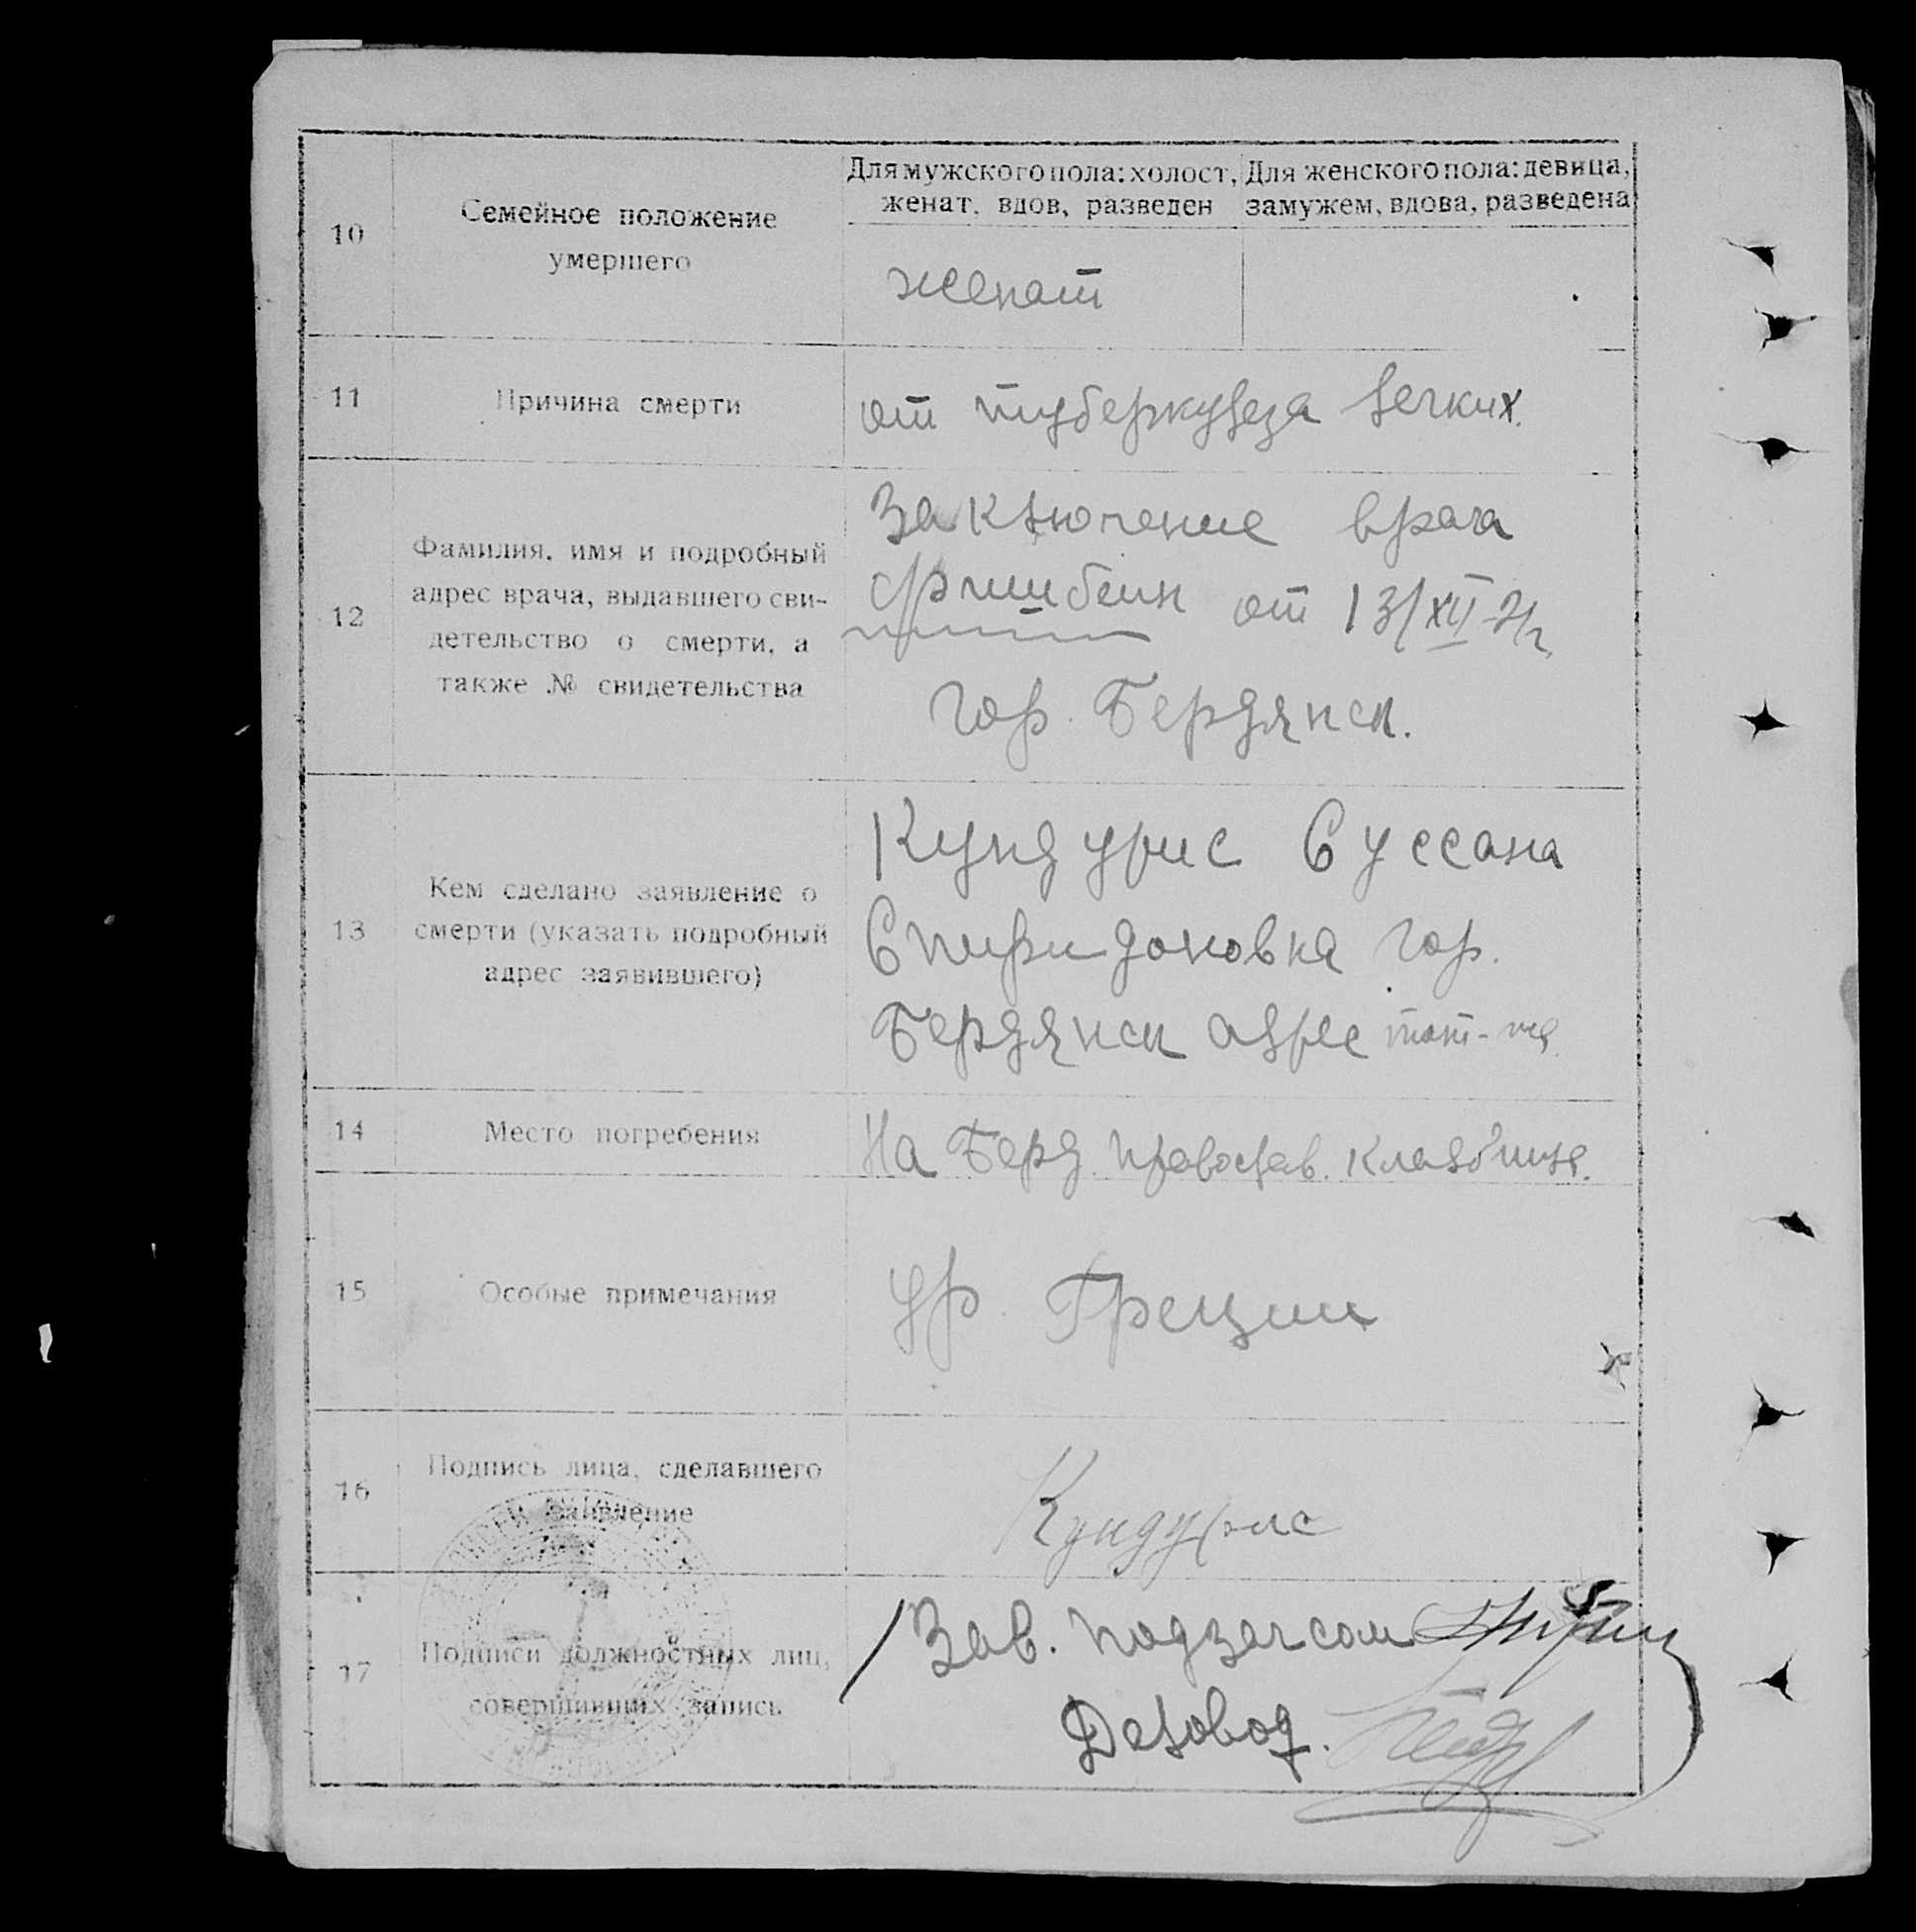 10
Семейное положение
умершего
Для мужского пола: холост,
женат, вдов, разведен
Для женского пола: девица,
замужем, вдова, разведена
женат
11
Причина смерти
от туберкулеза легких.
12
Фамилия, имя и подробный
адрес врача, выдавшего сви-
детельство о смерти, а
также № свидетельства
Заключение врача
от 13/XII-21г.
гор. Бердянск.
13
Кем сделано заявление о
смерти (указать подробный
адрес заявившего)
Кундурис Суссана
Спиридоновна гор.
Бердянск адрес тот-же.
14
Место погребения
На Берд. православ. кладбище.
15
Особые примечания
гр. Греции
16
Подпись лица, сделавшего
заявление
Кундурис
17
Подписи должностных лиц,
совершивших запись
Зав. подзагсом
Деловод.